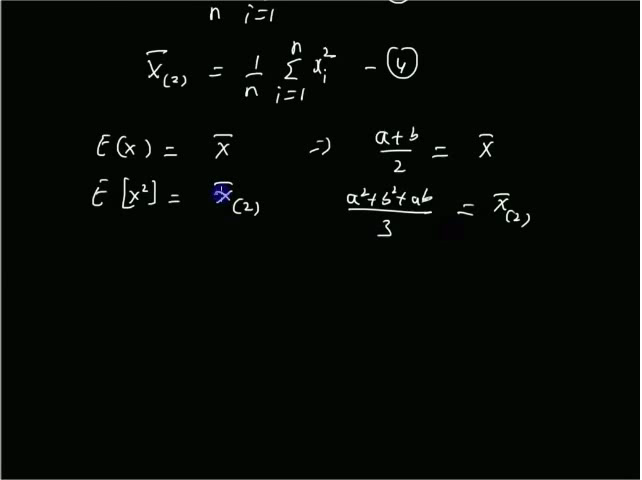 n i=1
X̄(2) = 1/n Σ_{i=1}^{n} x_i² - ④
E(x) = x̄ ⇒ (a+b)/2 = x̄
E[x²] = x̄(2) (a²+b²+ab)/3 = x̄(2)